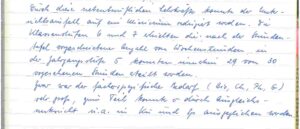 Durch die nebenamtlichen Lehrkräfte konnte der Unter-
richtsausfall auf ein Minimum reduziert werden. Die
Klassenstufen 6 und 7 erhielten die nach der Stunden-
tafel vorgesehene Anzahl von Wochenstunden, in
der Jahrgangsstufe 5 konnten immerhin 29 von 30
vorgesehenen Stunden erteilt werden.
Zwar war der fachspezifische Bedarf ( Bio, Ch, Ph, G )
sehr groß, zum Teil konnte er durch
unterricht u.a. in und ausgeglichen werden